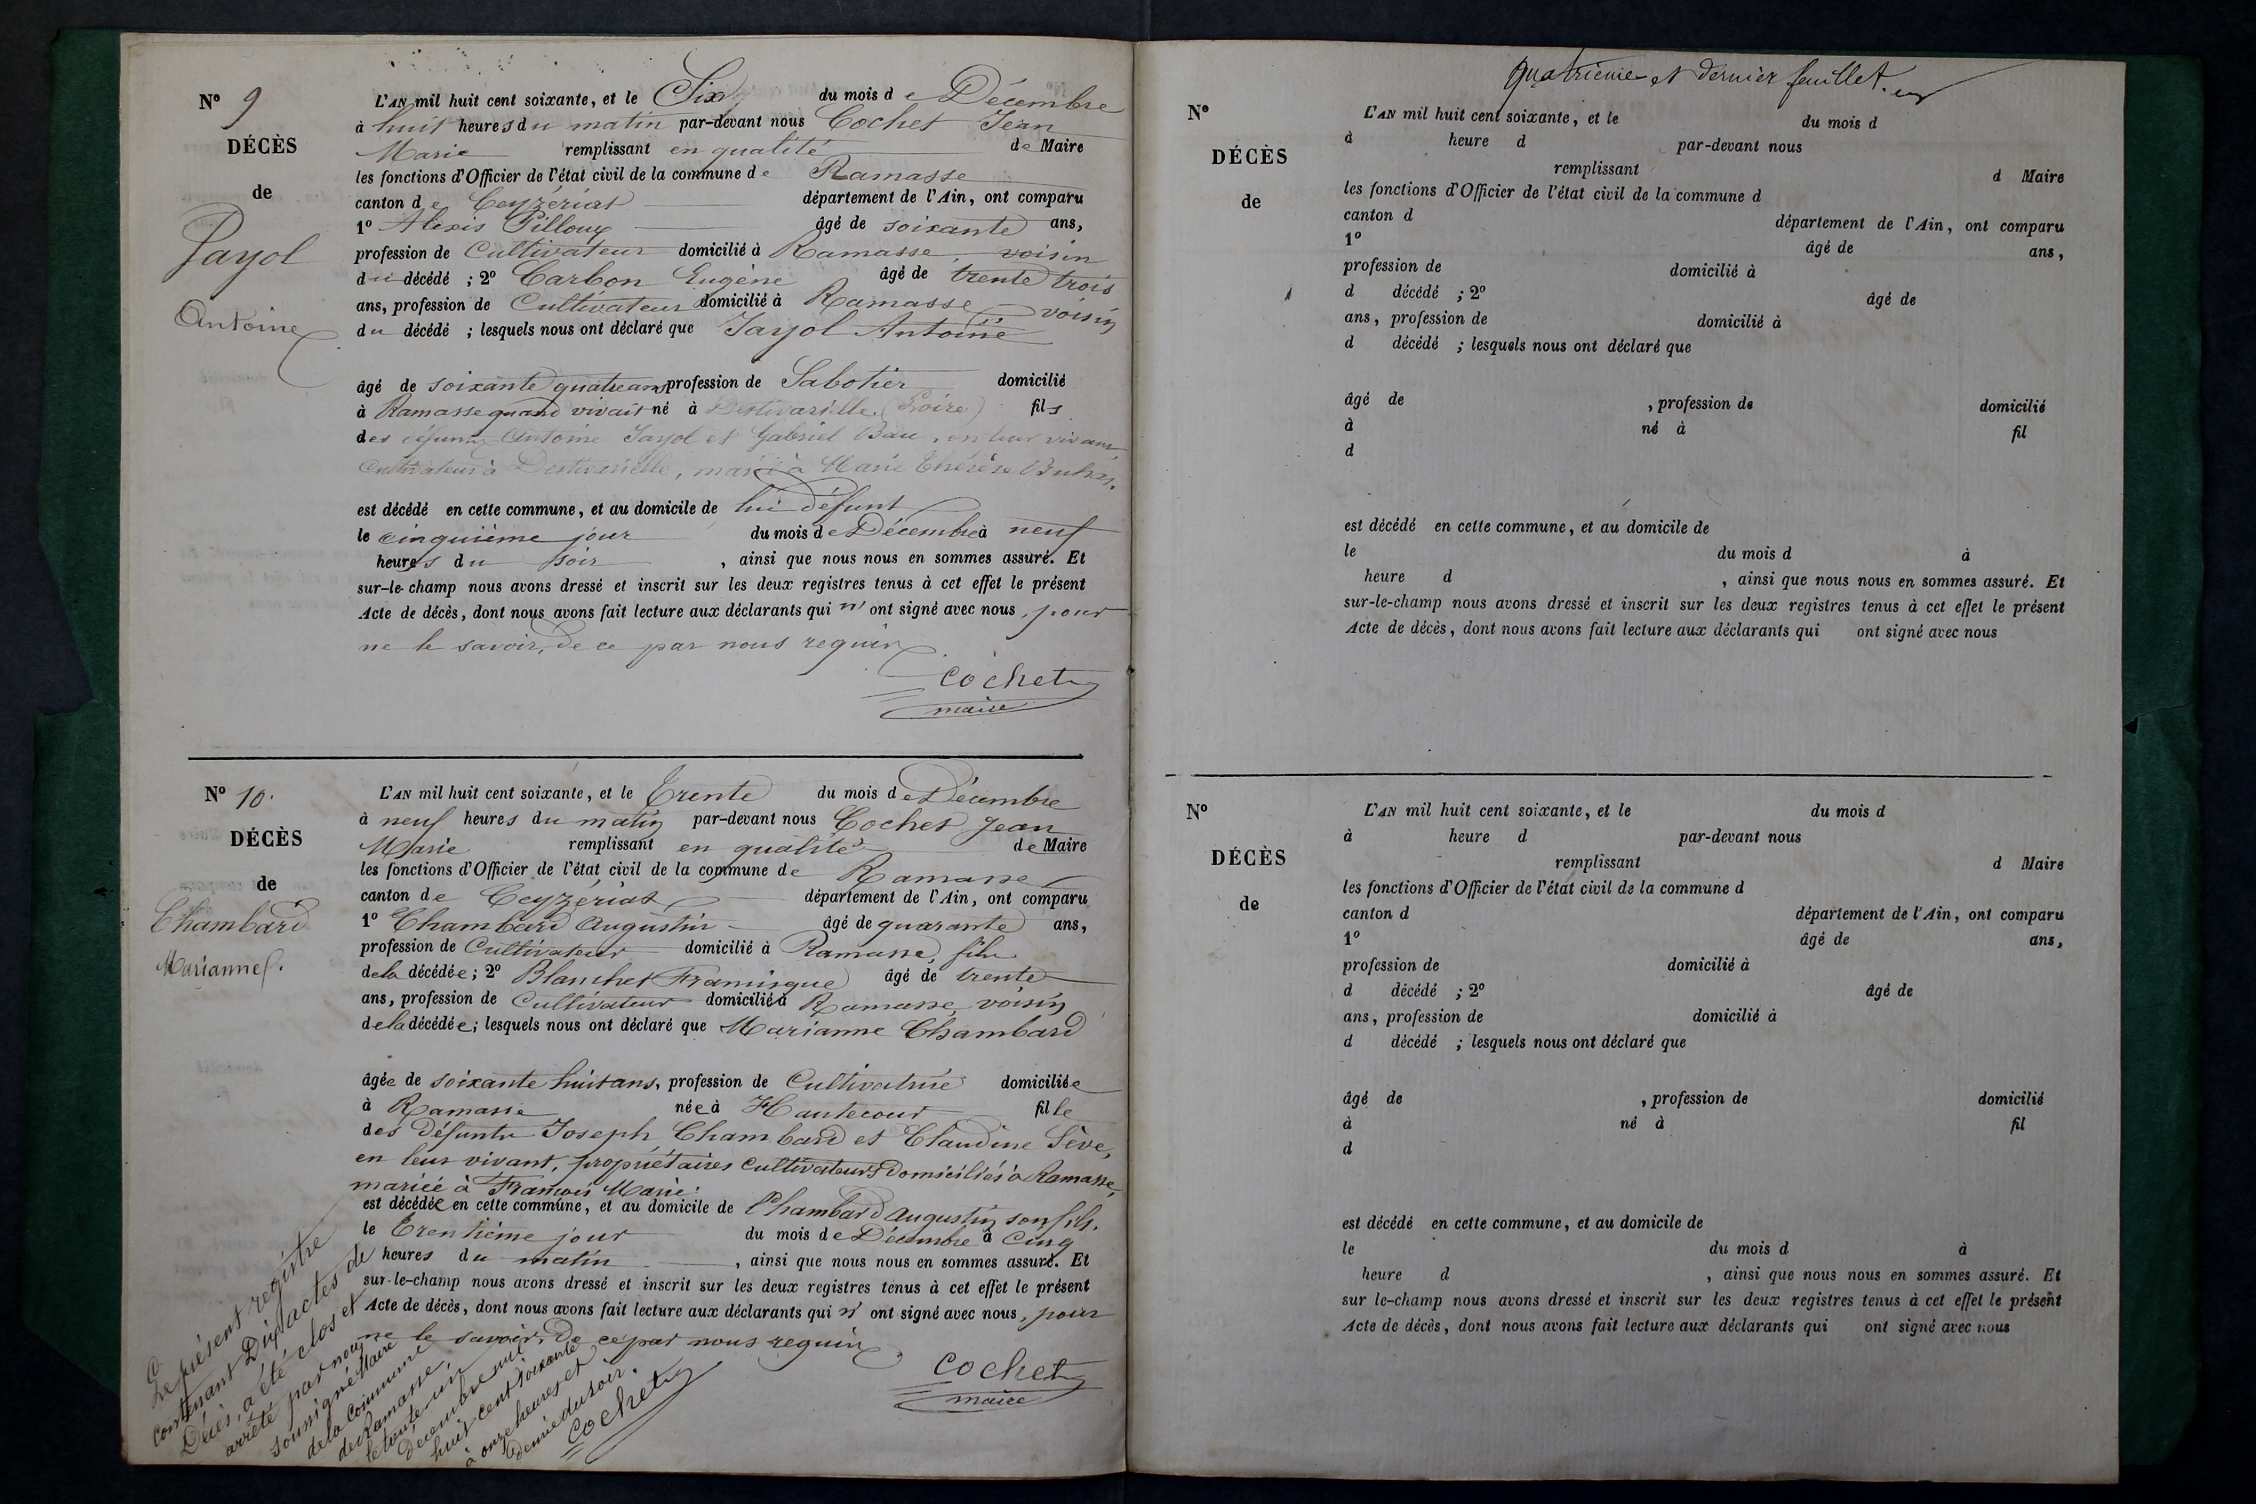 N° 9
DÉCÈS
de
Jayol
Antoine
L'AN mil huit cent soixante, et le Six du mois de Décembre
à huit heures du matin par-devant nous Cochet Jean
Marie remplissant en qualité de Maire
les fonctions d'Officier de l'état civil de la commune de Ramasse
canton de Ceyzériat département de l'Ain, ont comparu
1° Alexis Pilloux âgé de soixante ans,
profession de Cultivateur domicilié à Ramasse, voisin
du décédé ; 2° Carbon Eugène âgé de trente trois
ans, profession de Cultivateur domicilié à Ramasse voisin
du décédé ; lesquels nous ont déclaré que Jayol Antoine
âgé de soixante quatre ans profession de Sabotier domicilié
à Ramasse quand vivait né à (Loire) fils
des défunts Antoine Jayol et Gabriel Bau, en leur vivant,
Cultivateurs à marié à Marie Thérèse
est décédé en cette commune, et au domicile de lui défunt
le cinquième jour du mois de Décembre à neuf
heures du soir , ainsi que nous nous en sommes assuré. Et
sur-le-champ nous avons dressé et inscrit sur les deux registres tenus à cet effet le présent
Acte de décès, dont nous avons fait lecture aux déclarants qui n' ont signé avec nous, pour
ne le savoir, de ce par nous requis
Cochet
maire
N° 10.
DÉCÈS
de
Chambard
Marianne.
L'AN mil huit cent soixante, et le Trente du mois de Décembre
à neuf heures du matin par-devant nous Cochet Jean
Marie remplissant en qualité de Maire
les fonctions d'Officier de l'état civil de la commune de Ramasse
canton de Ceyzériat département de l'Ain, ont comparu
1° Chambard Augustin âgé de quarante ans,
profession de Cultivateur domicilié à Ramasse, fils
de la décédée ; 2° Blanchet Françisque âgé de trente
ans, profession de Cultivateur domicilié à Ramasse, voisin
de la décédée ; lesquels nous ont déclaré que Marianne Chambard
âgée de soixante huit ans, profession de Cultivatrice domiciliée
à Ramasse née à Hautecour fille
des défunts Joseph Chambard et Claudine Sève,
en leur vivant, propriétaires cultivateurs domiciliés à Ramasse,
mariée à François Marie
est décédée en cette commune, et au domicile de Chambard Augustin son fils.
le Trentième jour du mois de Décembre à Cinq
heures du matin , ainsi que nous nous en sommes assuré. Et
sur-le-champ nous avons dressé et inscrit sur les deux registres tenus à cet effet le présent
Acte de décès, dont nous avons fait lecture aux déclarants qui n' ont signé avec nous, pour
ne le savoir, de ce par nous requis
Cochet
maire
Le présent registre
contenant Dix actes de
Décès, a été clos et
arrêté par nous
soussigné Maire
de la commune
de Ramasse,
le trente-un
Décembre mil
huit cent soixante
à onze heures et
demie du soir.
Cochet
quatrième et dernier feuillet.
N°
DÉCÈS
de
L'AN mil huit cent soixante, et le du mois d
à heure d par-devant nous
remplissant d Maire
les fonctions d'Officier de l'état civil de la commune d
canton d département de l'Ain, ont comparu
1° âgé de ans,
profession de domicilié à
d décédé ; 2° âgé de
ans, profession de domicilié à
d décédé ; lesquels nous ont déclaré que
âgé de , profession de domicilié
à né à fil
d
est décédé en cette commune, et au domicile de
le du mois d à
heure d , ainsi que nous nous en sommes assuré. Et
sur-le-champ nous avons dressé et inscrit sur les deux registres tenus à cet effet le présent
Acte de décès, dont nous avons fait lecture aux déclarants qui ont signé avec nous
N°
DÉCÈS
de
L'AN mil huit cent soixante, et le du mois d
à heure d par-devant nous
remplissant d Maire
les fonctions d'Officier de l'état civil de la commune d
canton d département de l'Ain, ont comparu
1° âgé de ans,
profession de domicilié à
d décédé ; 2° âgé de
ans, profession de domicilié à
d décédé ; lesquels nous ont déclaré que
âgé de , profession de domicilié
à né à fil
d
est décédé en cette commune, et au domicile de
le du mois d à
heure d , ainsi que nous nous en sommes assuré. Et
sur le-champ nous avons dressé et inscrit sur les deux registres tenus à cet effet le présent
Acte de décès, dont nous avons fait lecture aux déclarants qui ont signé avec nous